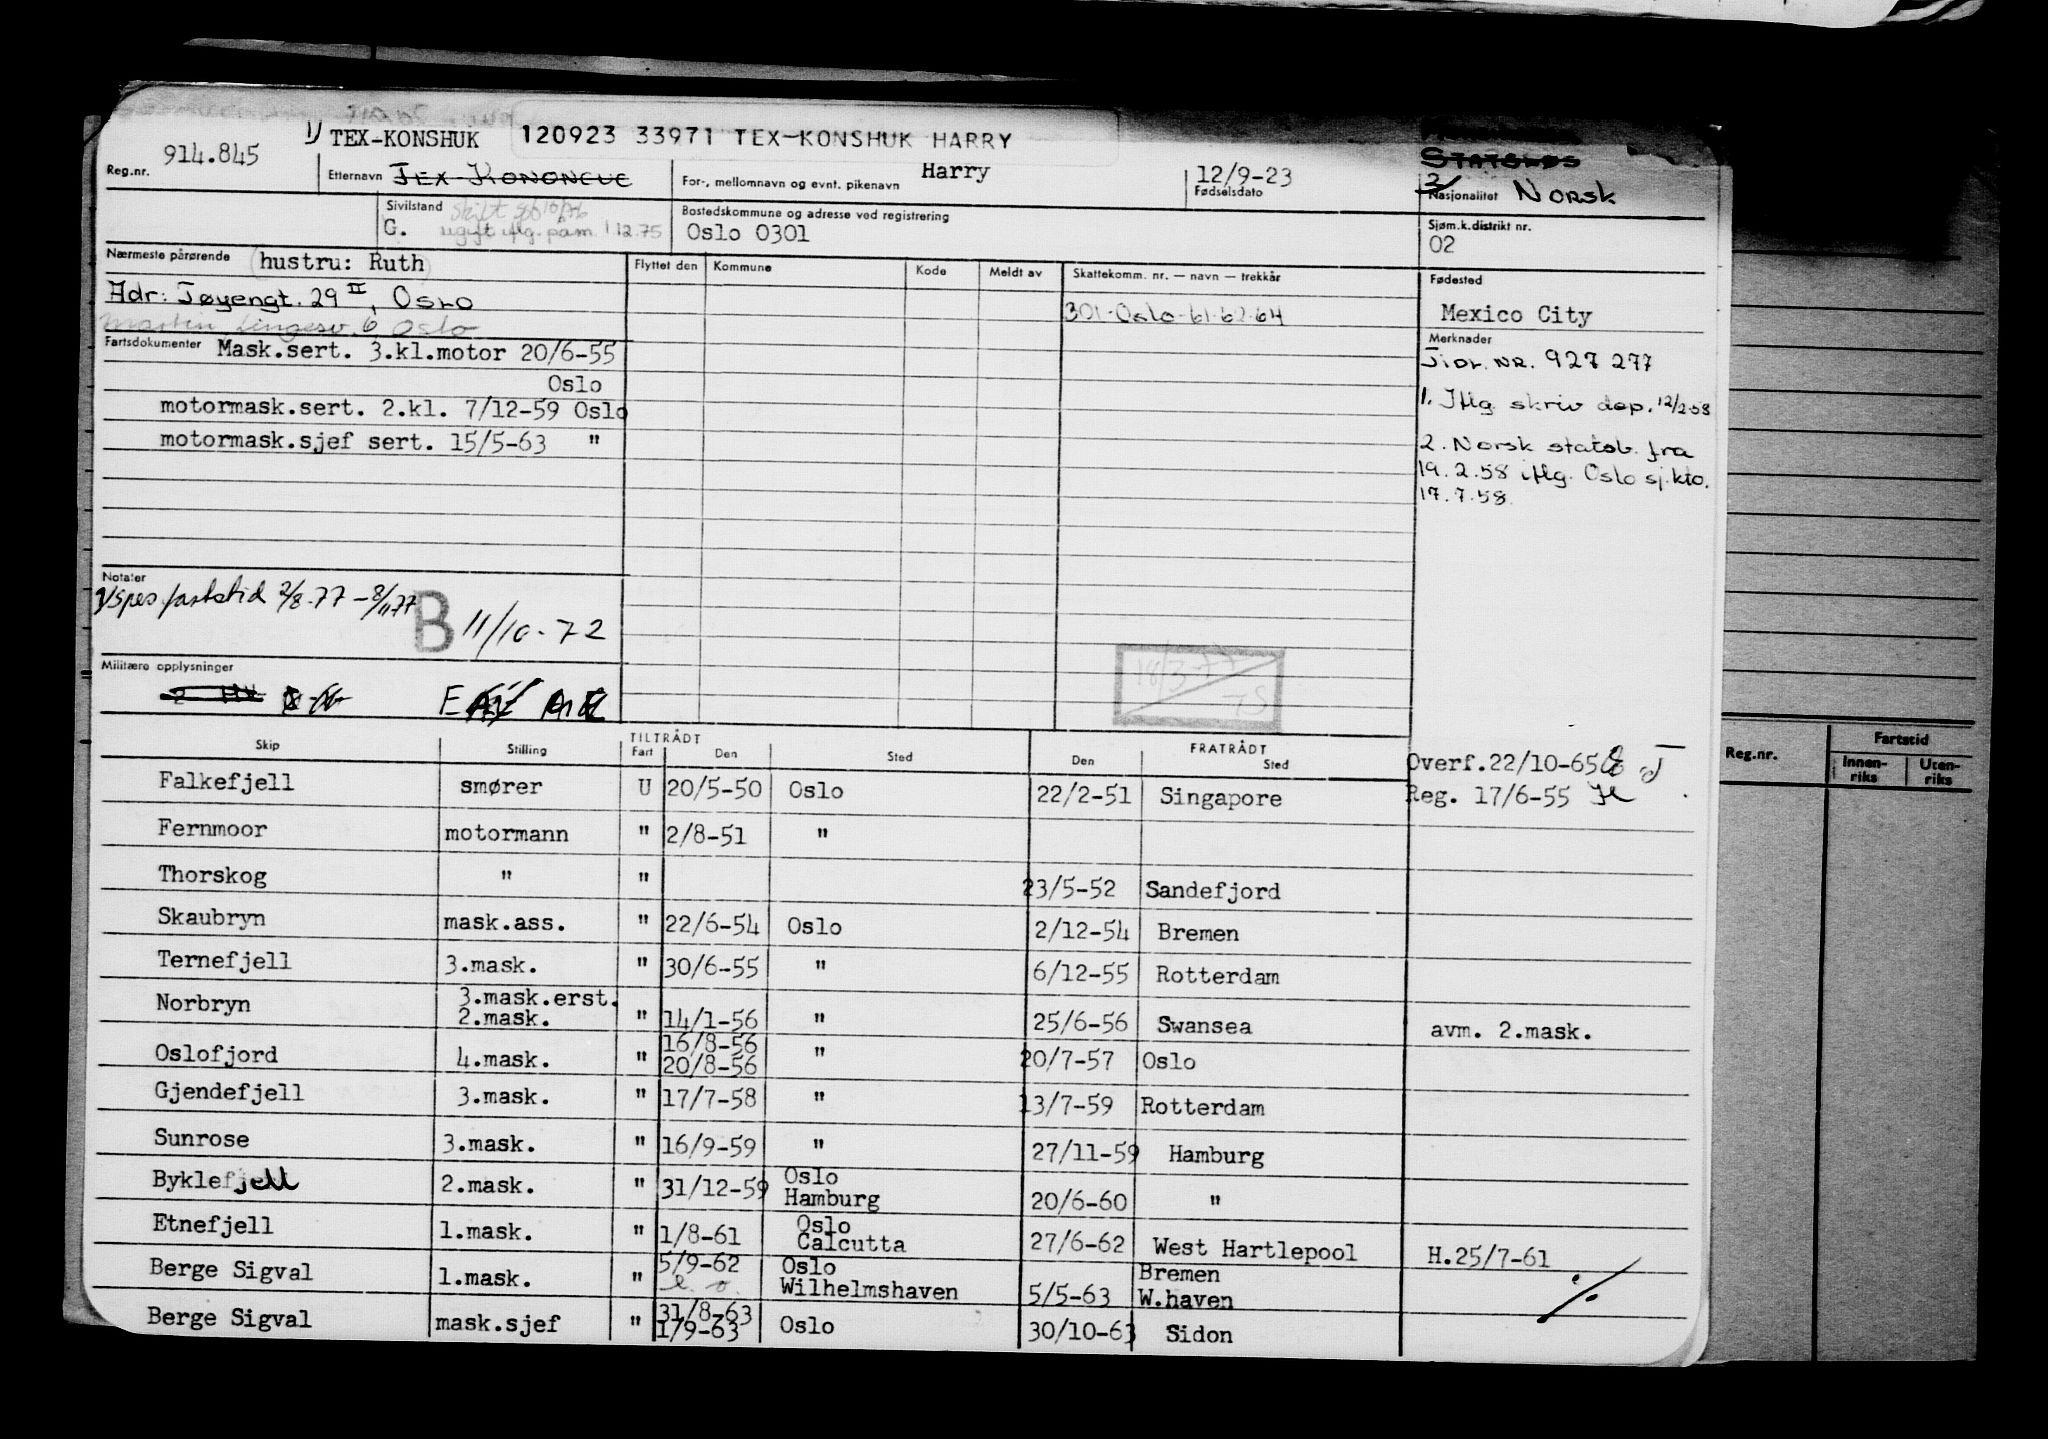 1) TEX-KONSHUK 120923 33971 TEX-KONSHUK HARRY
Reg.nr. 914.845
Etternavn
For-, mellomnavn og evnt. pikenavn Harry
12/9-23
Fødselsdato
STATSLØS
2) Nasjonalitet NORSK
Sivilstand
G.
Bostedskommune og adresse ved registrering
Oslo 0301
Sjøm.k.distrikt nr.
02
Nærmeste pårørende (hustru: Ruth)
Adr: Tøyengt. 29 II, OSLO
Oslo
Flyttet den Kommune Kode Meldt av Skattekomm. nr. — navn — trekkår
301-Oslo-61-62-64
Fødested
Mexico City
Fartsdokumenter Mask.sert. 3.kl.motor 20/6-55
Oslo
motormask.sert. 2.kl. 7/12-59 Oslo
motormask.sjef sert. 15/5-63 "
Merknader
Tidl. NR. 927 277
1. Iflg. skriv dep. 12/2-58
2. Norsk statsb. fra
19.2.58 iflg. Oslo sj.kto.
17.7.58.
Notater
fartstid 2/8-77 - 8/11 77
B 11/10-72
Militære opplysninger
18/3-77
Skip Stilling TILTRÅDT Fart Den Sted FRATRÅDT Den Sted
Overf.22/10-65
Reg. 17/6-55
Falkefjell smører U 20/5-50 Oslo 22/2-51 Singapore
Fernmoor motormann " 2/8-51 "
Thorskog " " 23/5-52 Sandefjord
Skaubryn mask.ass. " 22/6-54 Oslo 2/12-54 Bremen
Ternefjell 3.mask. " 30/6-55 " 6/12-55 Rotterdam
Norbryn 3.mask.erst. 2.mask. " 14/1-56 " 25/6-56 Swansea avm. 2.mask.
Oslofjord 4.mask. " 16/8-56 20/8-56 " 20/7-57 Oslo
Gjendefjell 3.mask. " 17/7-58 " 13/7-59 Rotterdam
Sunrose 3.mask. " 16/9-59 " 27/11-59 Hamburg
Byklefjell 2.mask. " 31/12-59 Oslo Hamburg 20/6-60 "
Etnefjell 1.mask. " 1/8-61 Oslo Calcutta 27/6-62 West Hartlepool H.25/7-61
Berge Sigval 1.mask. " 5/9-62 Oslo Wilhelmshaven 5/5-63 Bremen W.haven
Berge Sigval mask.sjef " 31/8-63 1/9-63 Oslo 30/10-63 Sidon
Reg.nr.
Fartstid
Innen-riks Uten-riks